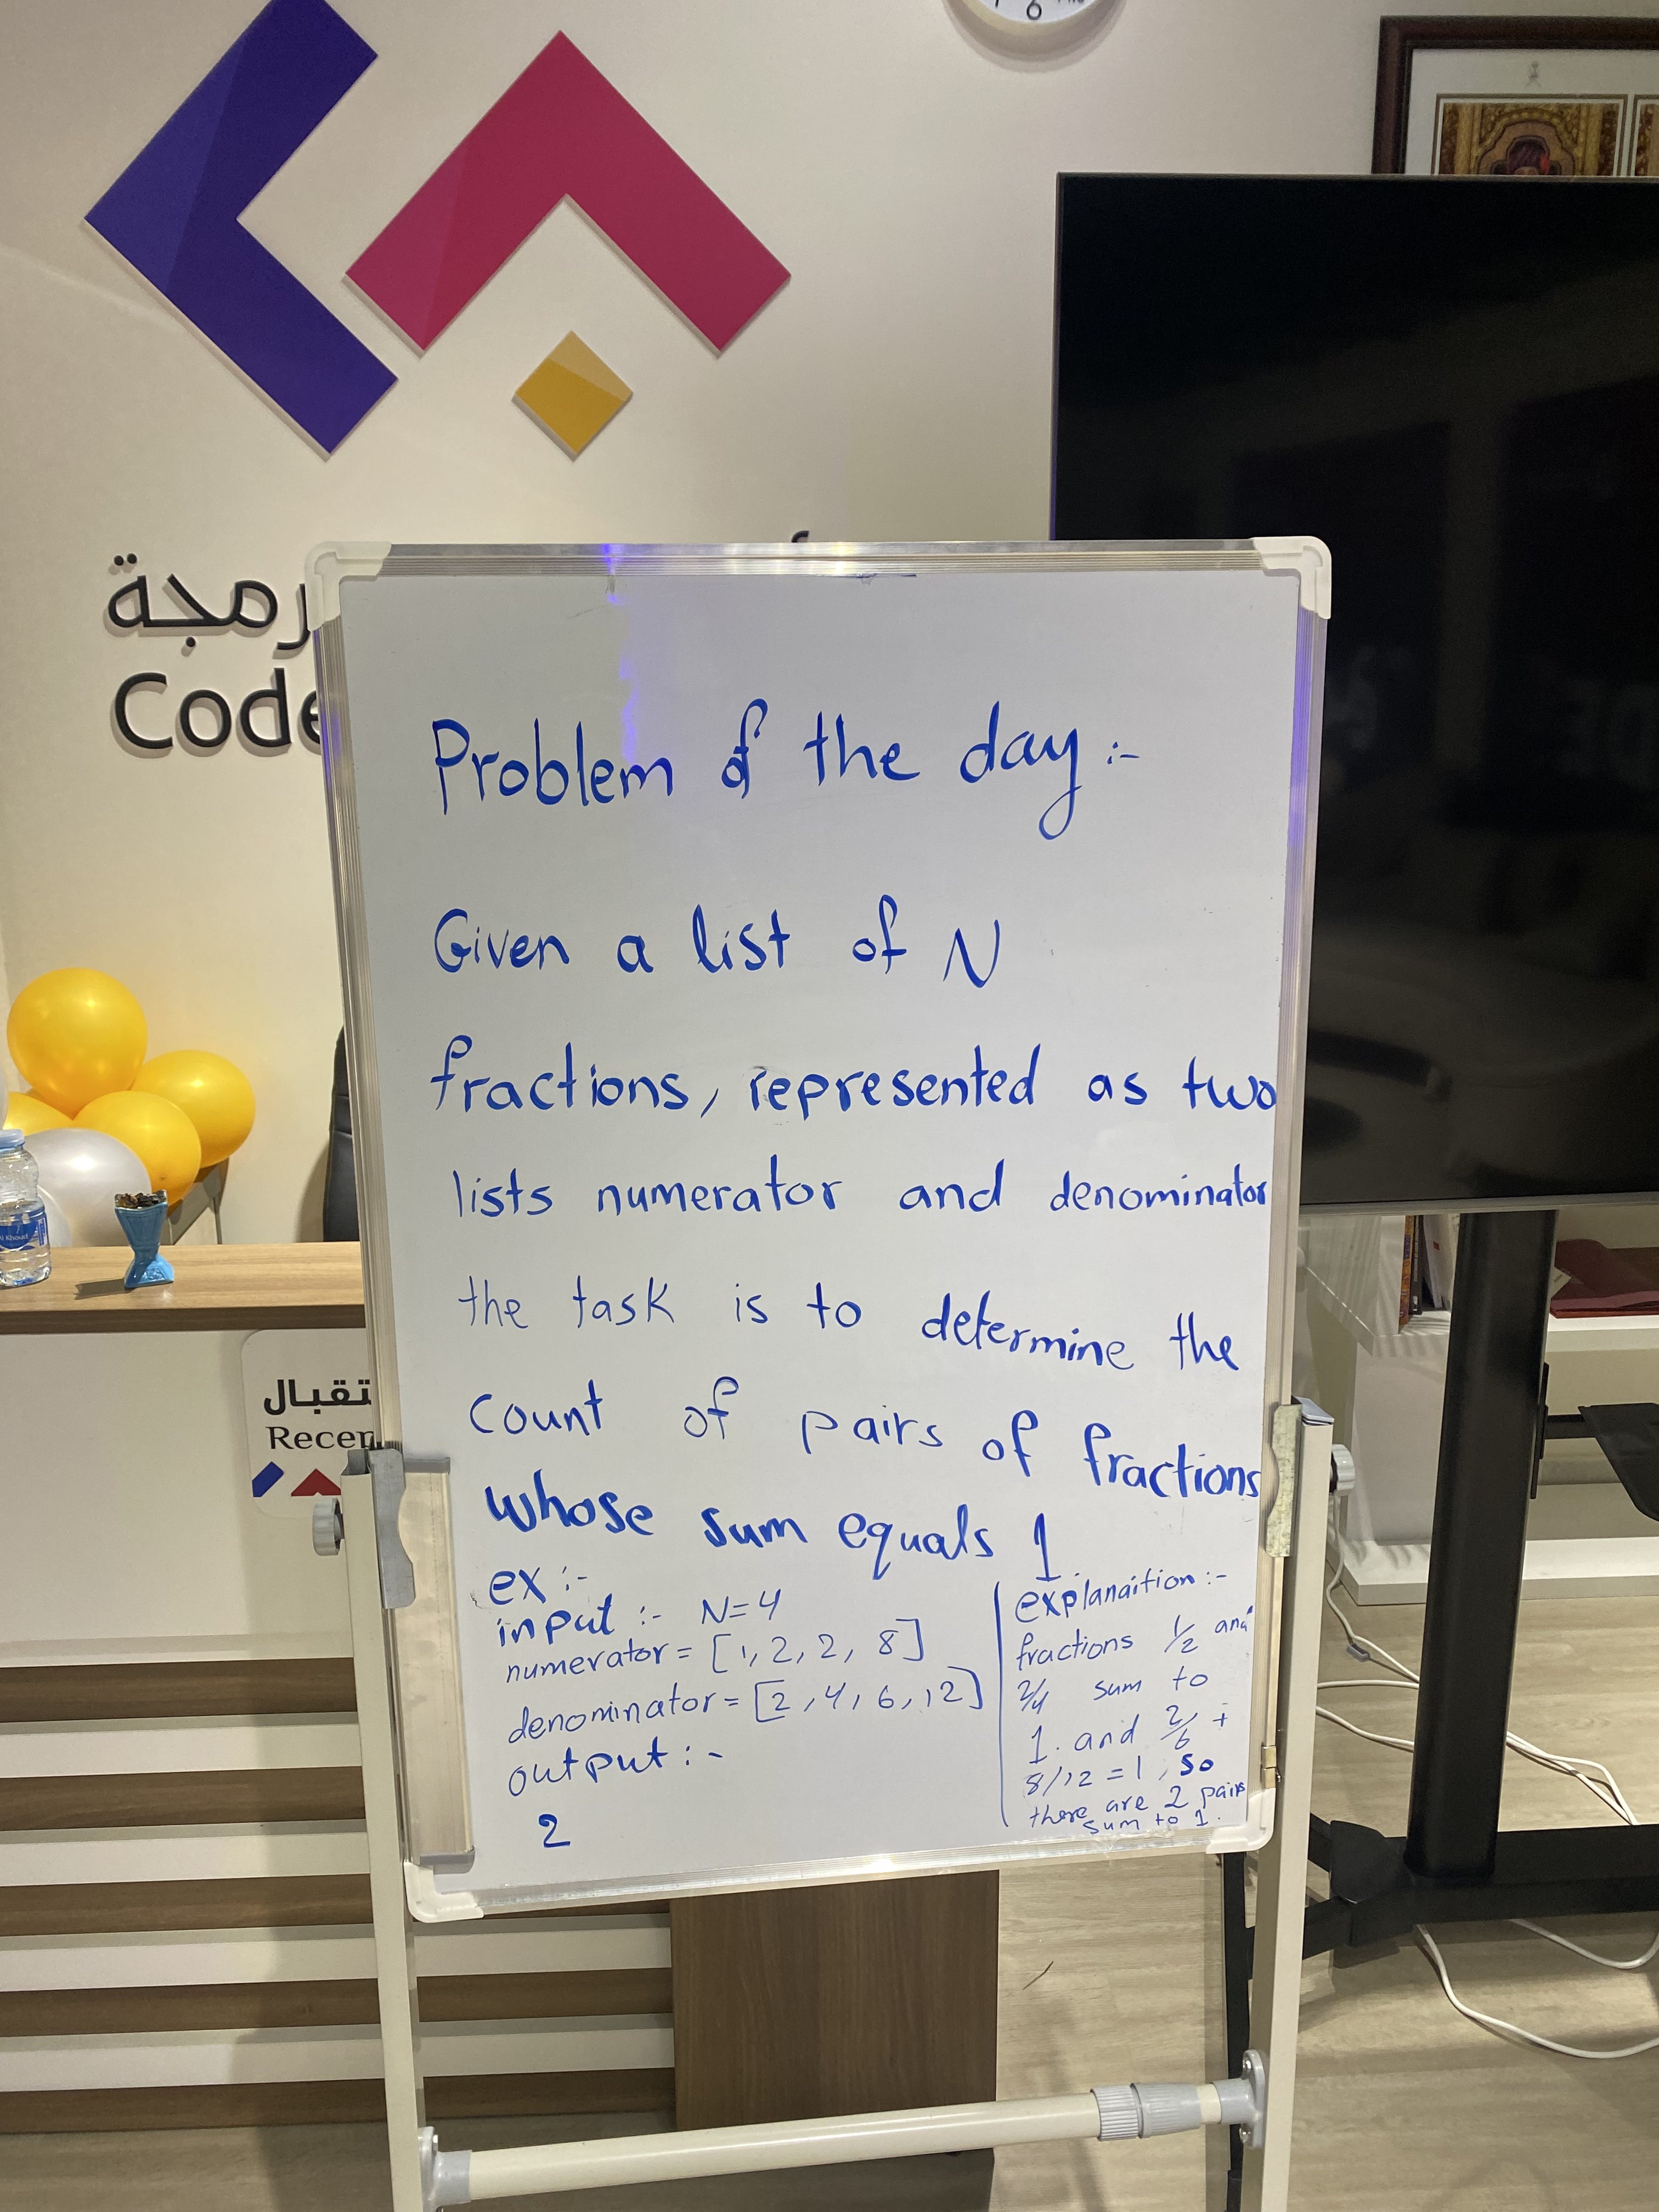 6
رمجة
Code
Problem of the day :-
Given a list of N
fractions, represented as two
lists numerator and denominator
the task is to determine the
count of pairs of fractions
whose sum equals 1
ex :-
input :- N=4
numerator = [1, 2, 2, 8]
denominator = [2, 4, 6, 12]
output : -
2
explanaition :-
fractions 1/2 and
2/4 sum to
1. and 2/6 +
8/12 = 1, so
there are 2 pairs
sum to 1.
تقبال
Recep
Al Khoud